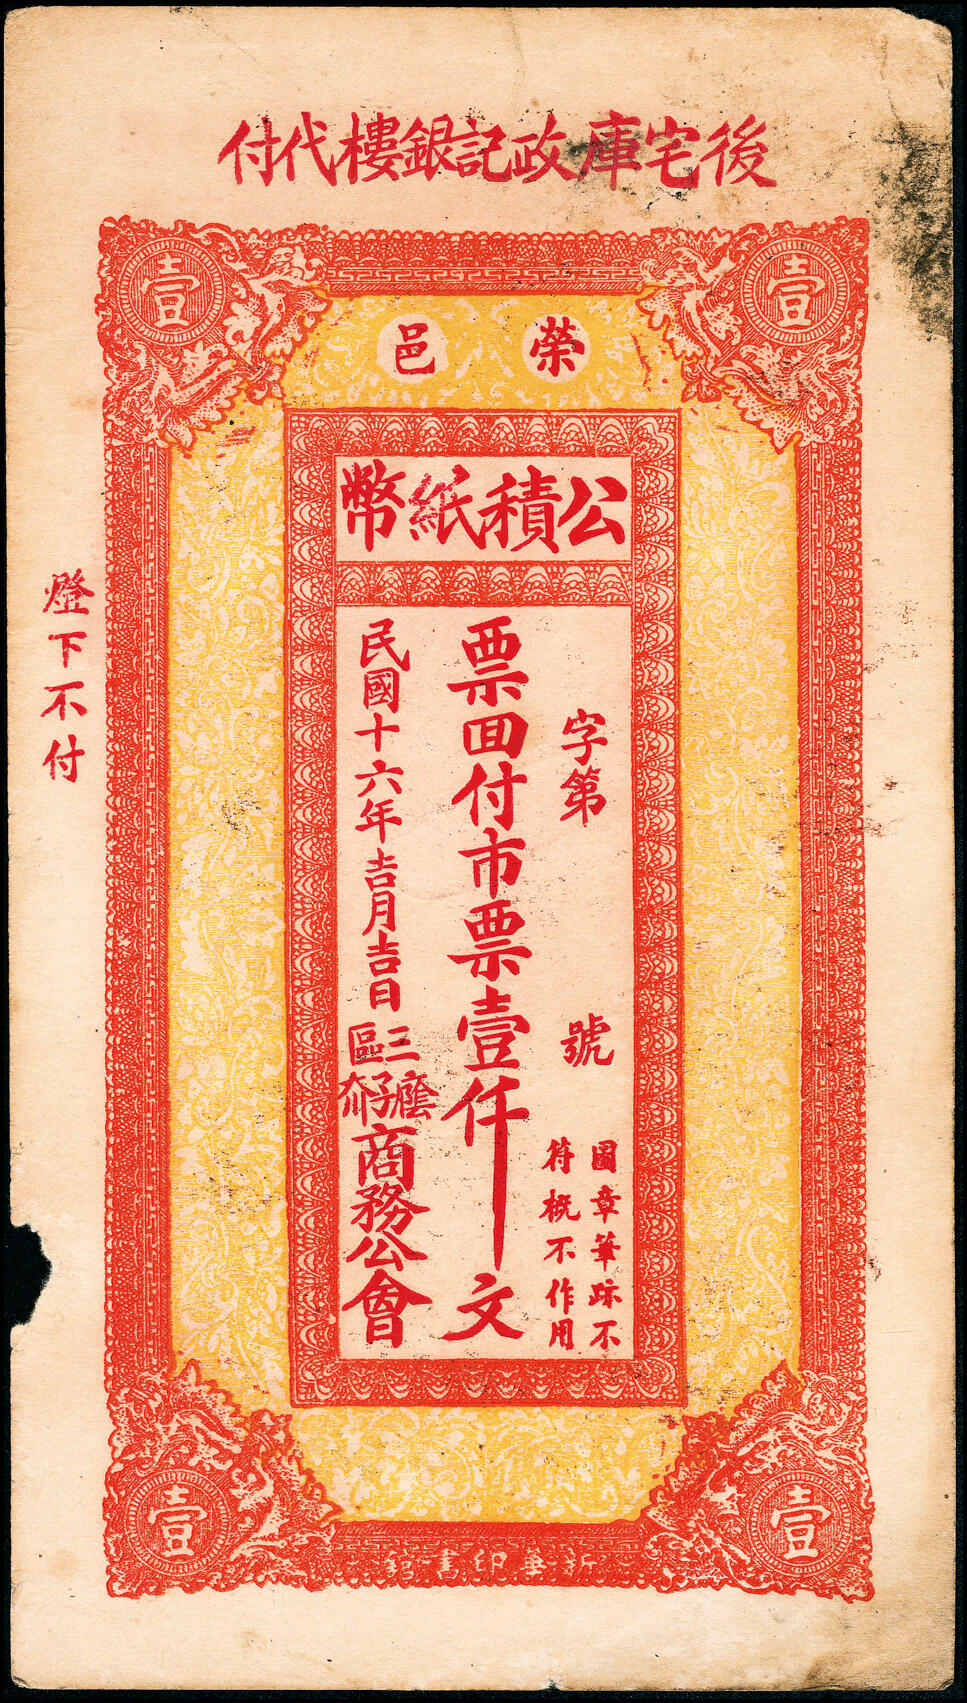 後宅庫政記銀樓代付
壹
壹
榮邑
公積紙幣
字第
號
圖章筆跡不
符概不作用
票回付市票壹仟文
民國十六年吉月吉日
三區
蔭子夼
商務公會
燈下不付
壹
壹
新華印書館